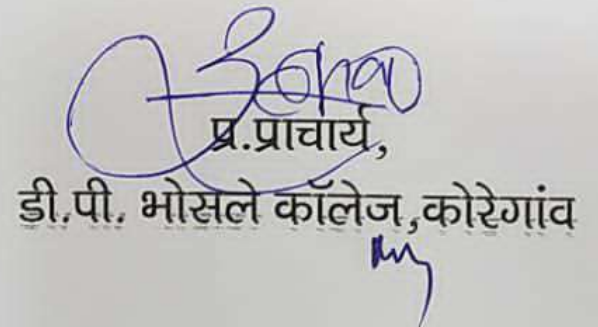 प्र.प्राचार्य,
डी.पी. भोसले कॉलेज,कोरेगांव